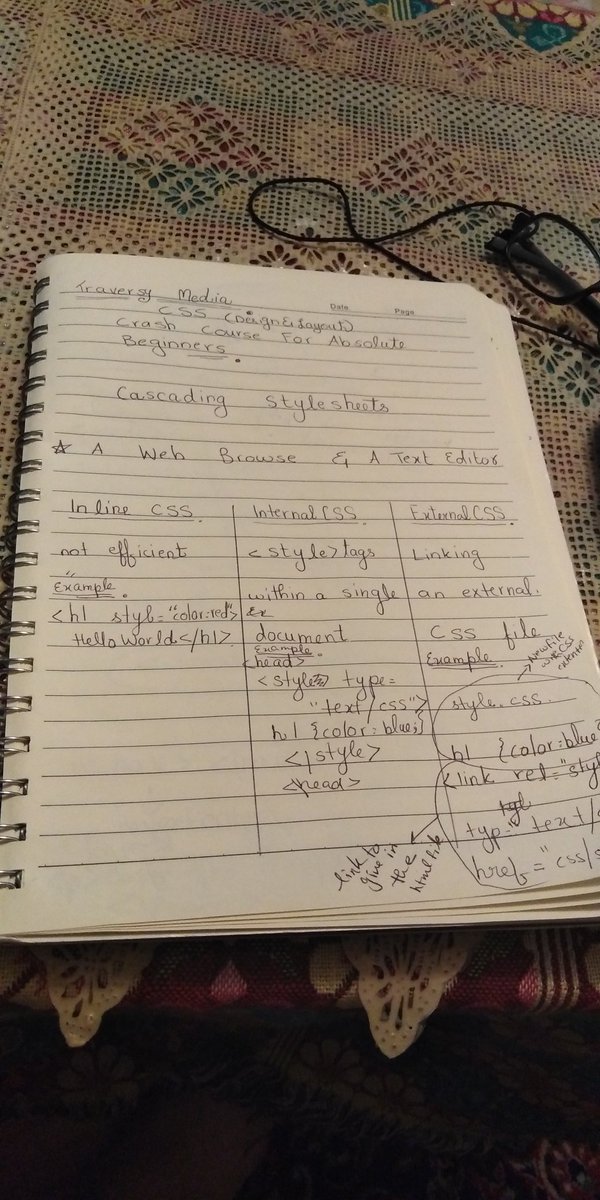 Traversy Media
Date Page
CSS (Design & Layout)
Crash Course For Absolute
Beginners.
Cascading Stylesheets
☆ A Web Browse & A Text Editor
Inline CSS.
not efficient
Example.
<h1 style="color:red">
Hello World</h1>.
Internal CSS.
<style>tags
within a single
Ex
document
Example.
<head>
<style type=
"text/css">
h1 {color:blue;}
</style>
<head>
External CSS.
Linking
an external.
CSS file
Example.
New file
with CSS
extention
style.css.
h1 {color:blue
<link rel="style
typ="text/
href="css/s
link to
give in
the
html file